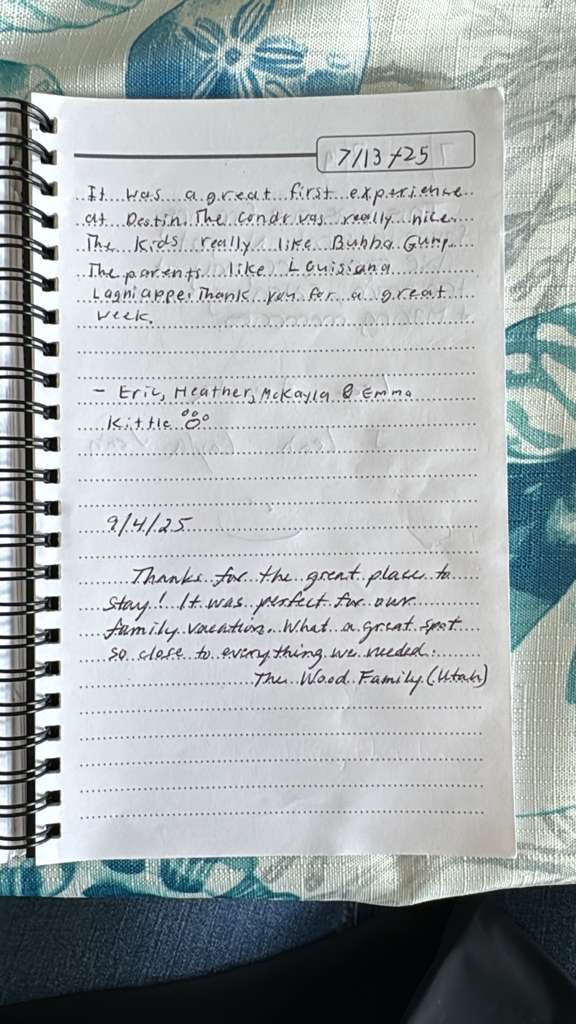 7/13/25
It was a great first experience
at Destin. The condo was really nice.
The kids really like Bubba Gump.
The parents like Louisiana
Lagniappe. Thank you for a great
week.
- Eric, Heather, McKayla & Emma
Kittle
9/4/25
Thanks for the great place to
stay! It was perfect for our
family vacation. What a great spot
so close to everything we needed.
The Wood Family (Utah)